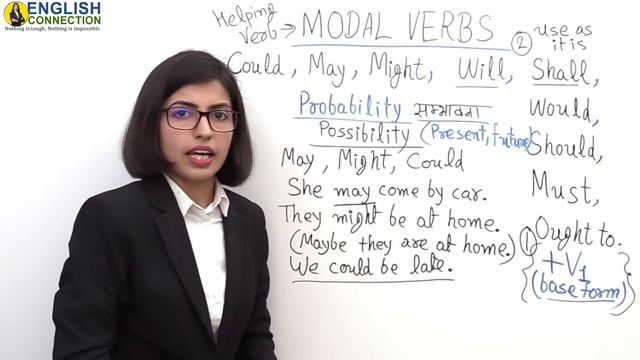 ENGLISH
CONNECTION
Nothing is tough, Nothing is impossible
Helping
Verb → MODAL VERBS
② use as
it is
Could, May, Might, Will, Shall,
Probability सम्भावना
Would,
Possibility (Present, future)
Should,
May, Might, Could
She may come by car.
Must,
They might be at home.
(Maybe they are at home.)
We could be late.
① Ought to.
+V1
(base form)